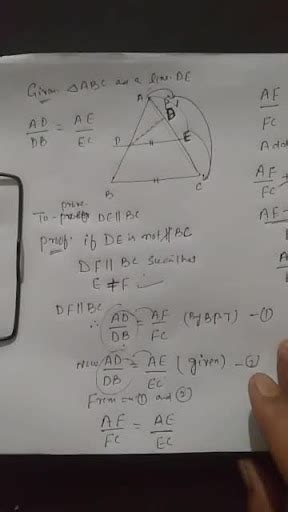 Given △ABC
line DE
AD/DB = AE/EC
A
F
E
D
B
C
To prove DE||BC
Proof: if DE is not ∦ BC
DF || BC such that
E ≠ F
DF||BC
∴ AD/DB = AF/FC (By BPT) – ①
Now AD/DB = AE/EC (given) – ②
From – ① and ②
AF/FC = AE/EC
AF
FC
AF
FC
AF